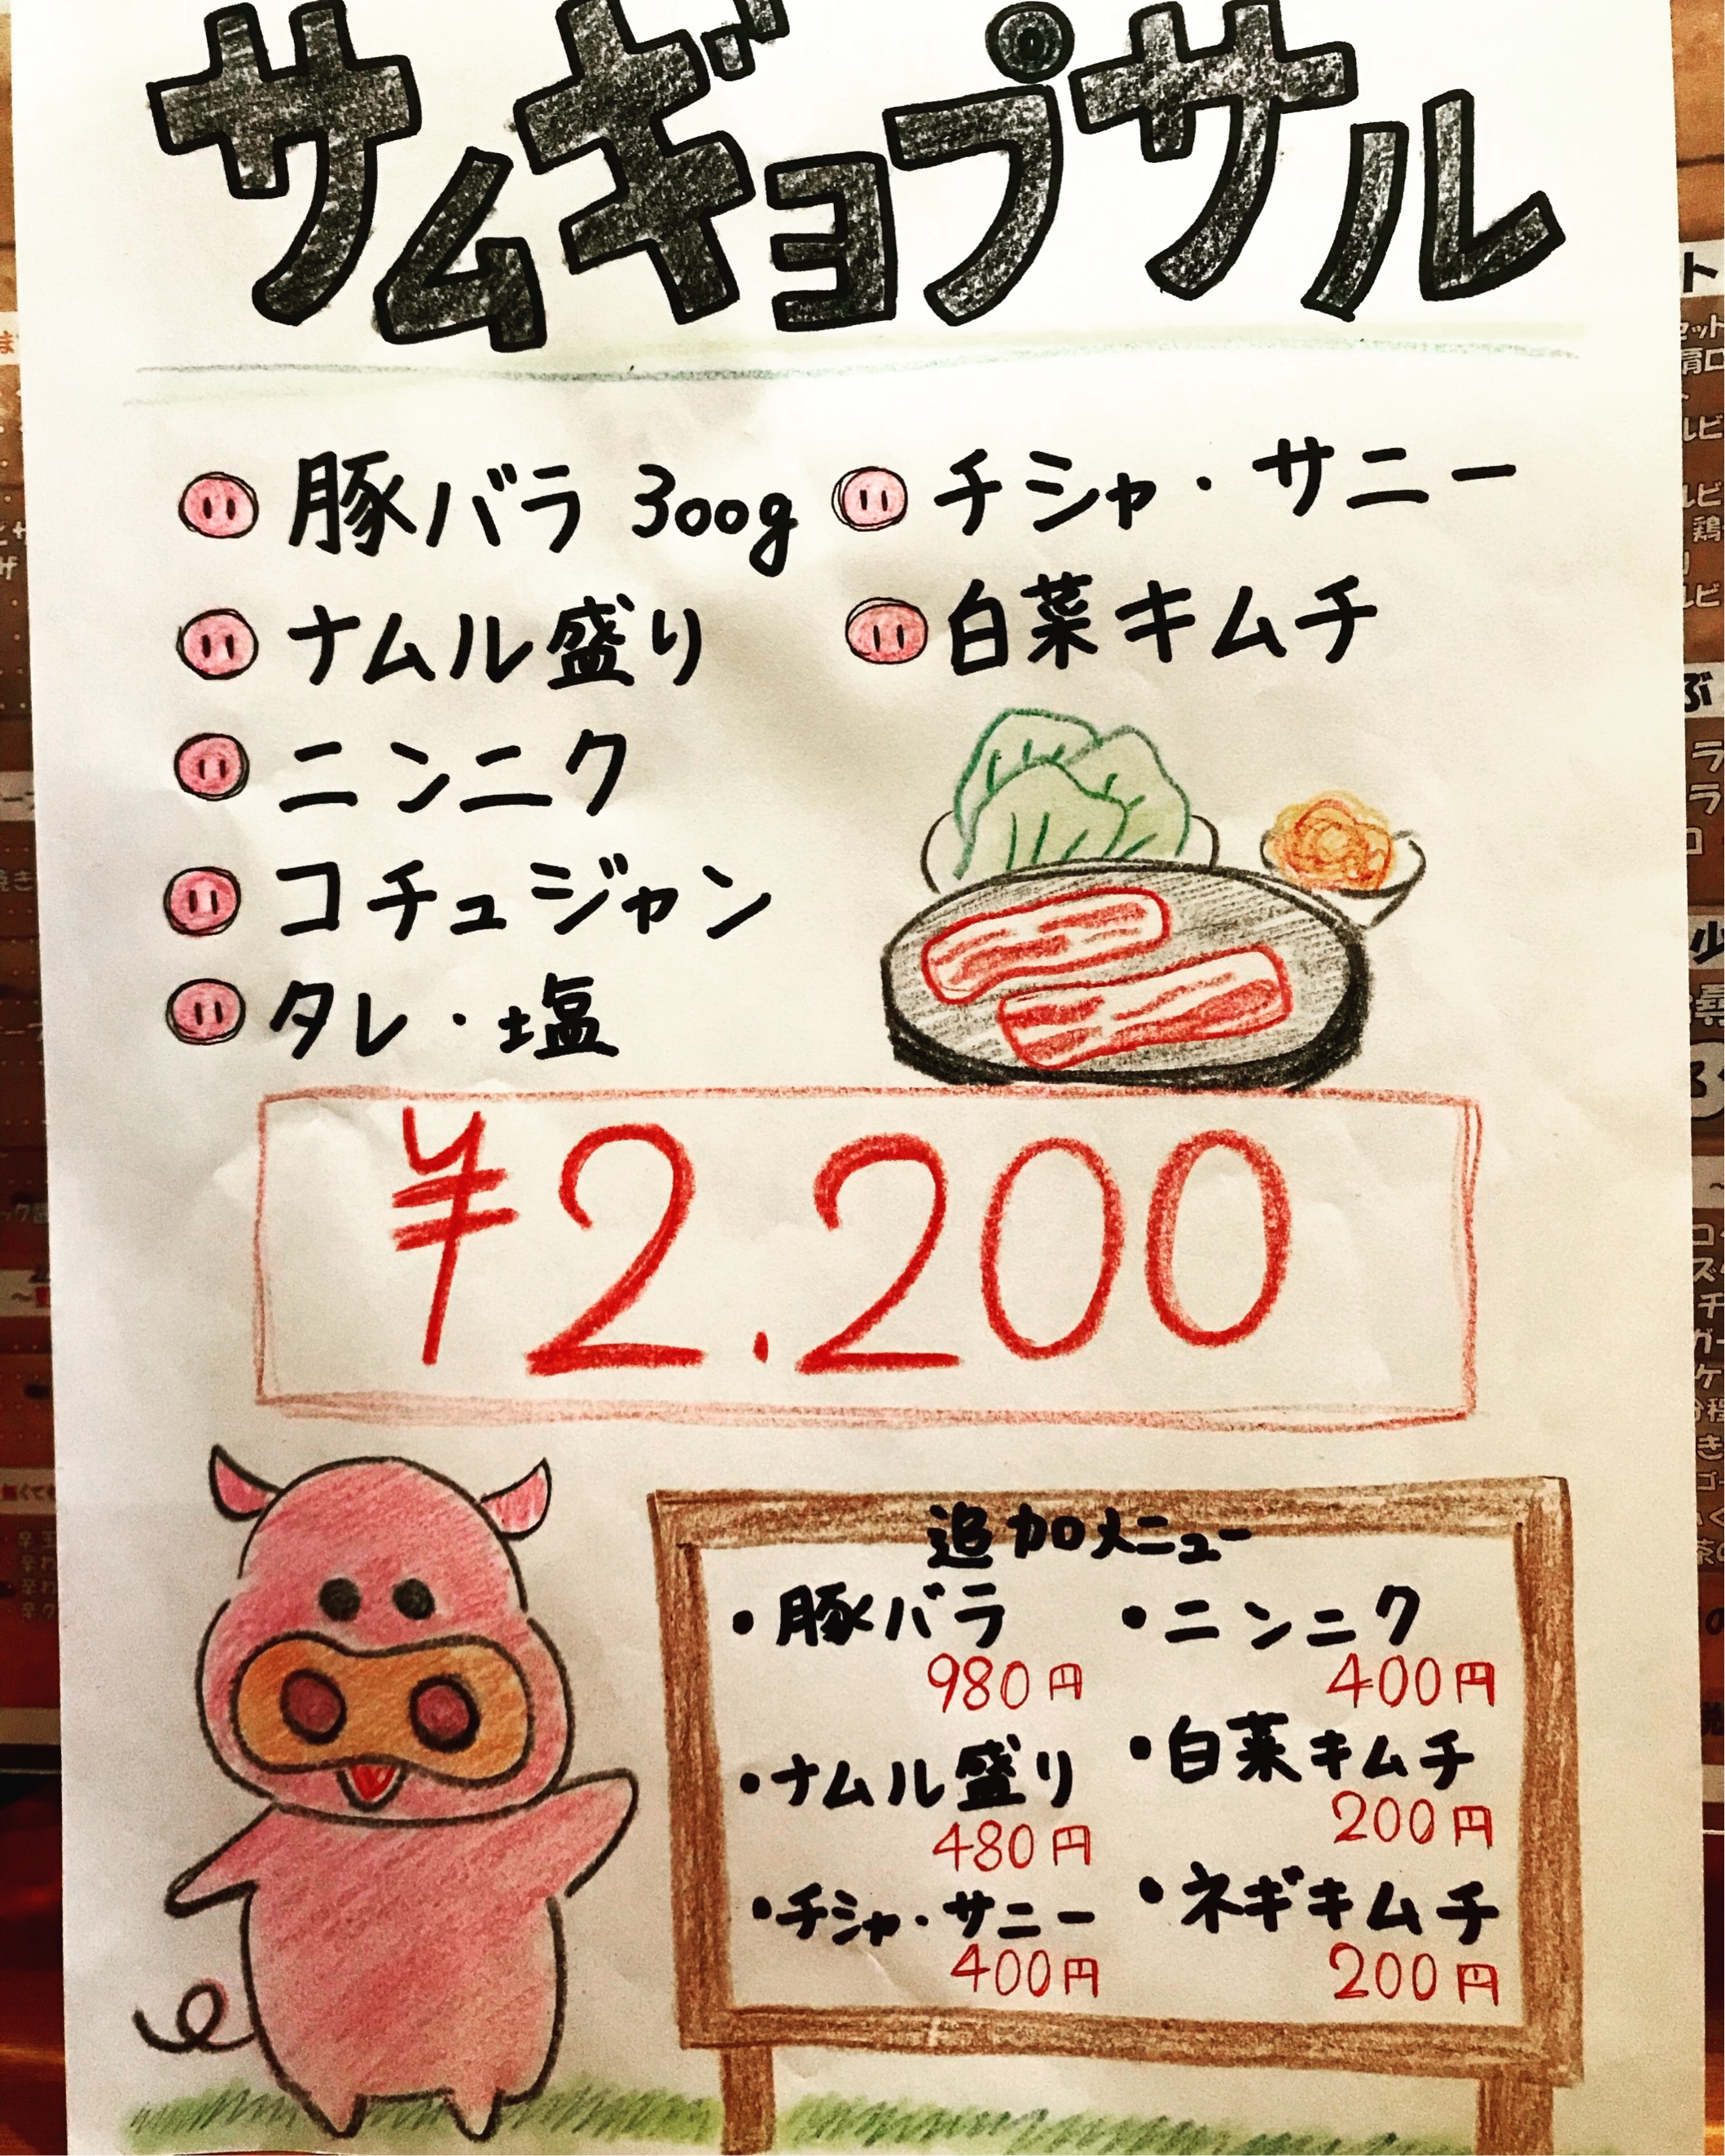 サムギョプサル
豚バラ 300g
チシャ・サニー
ナムル盛り
白菜キムチ
ニンニク
コチュジャン
タレ・塩
¥2.200
追加メニュー
・豚バラ
980円
・ニンニク
400円
・ナムル盛り
480円
・白菜キムチ
200円
・チシャ・サニー
400円
・ネギキムチ
200円